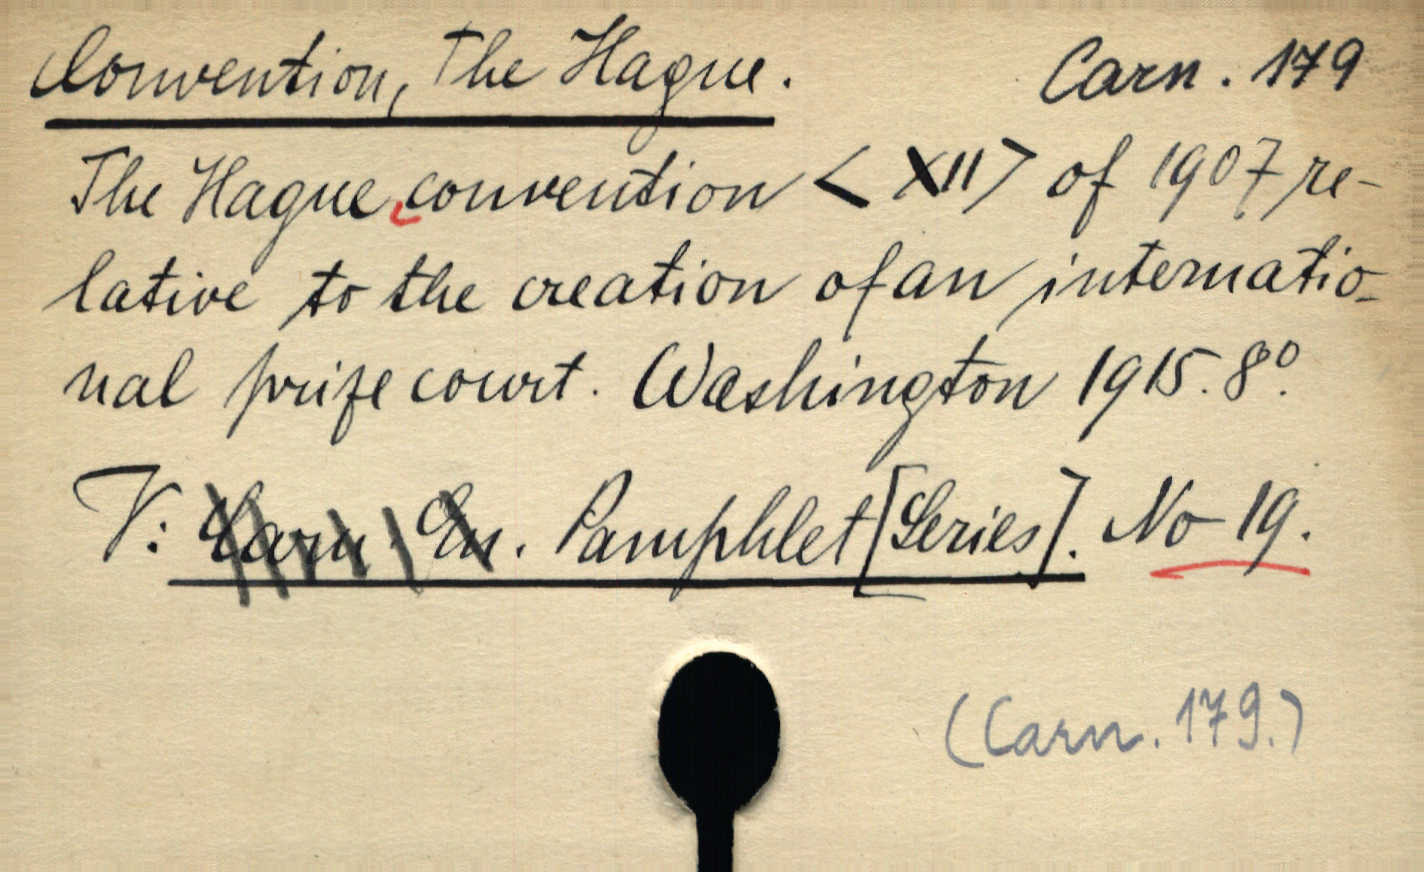 Convention, The Hague. Carn. 179
The Hague convention < XII > of 1907 re-
lative to the creation of an internatio-
nal prize court. Washington 1915. 8°.
V: Carn. En. Pamphlet [Series]. No 19.
(Carn. 179.)